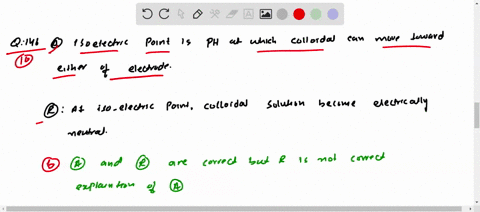 Q:146 A isoelectric Point is PH at which colloidal can move toward
16 either of electrode.
R: At iso-electric Point, colloidal solution become electrically
neutral.
b A and R are correct but R is not correct
explanation of A